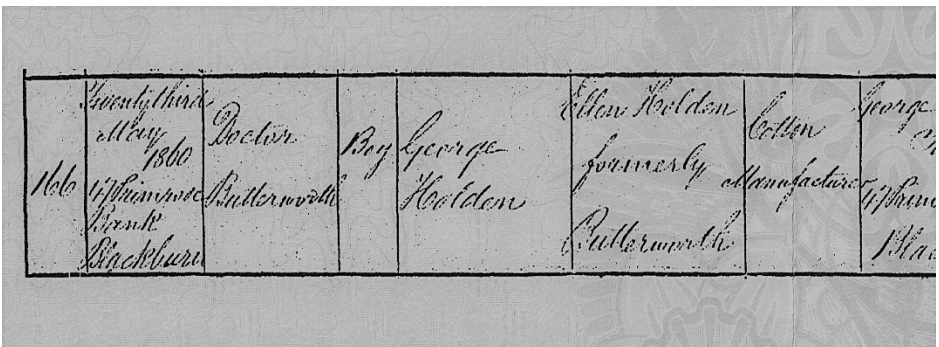 166
Twenty third
May
1860
47 Primrose
Bank
Blackburn
Doctor
Butterworth
Boy
George
Holden
Ellen Holden
formerly
Butterworth
Cotton
Manufacturer
George
47 Prim
Blac